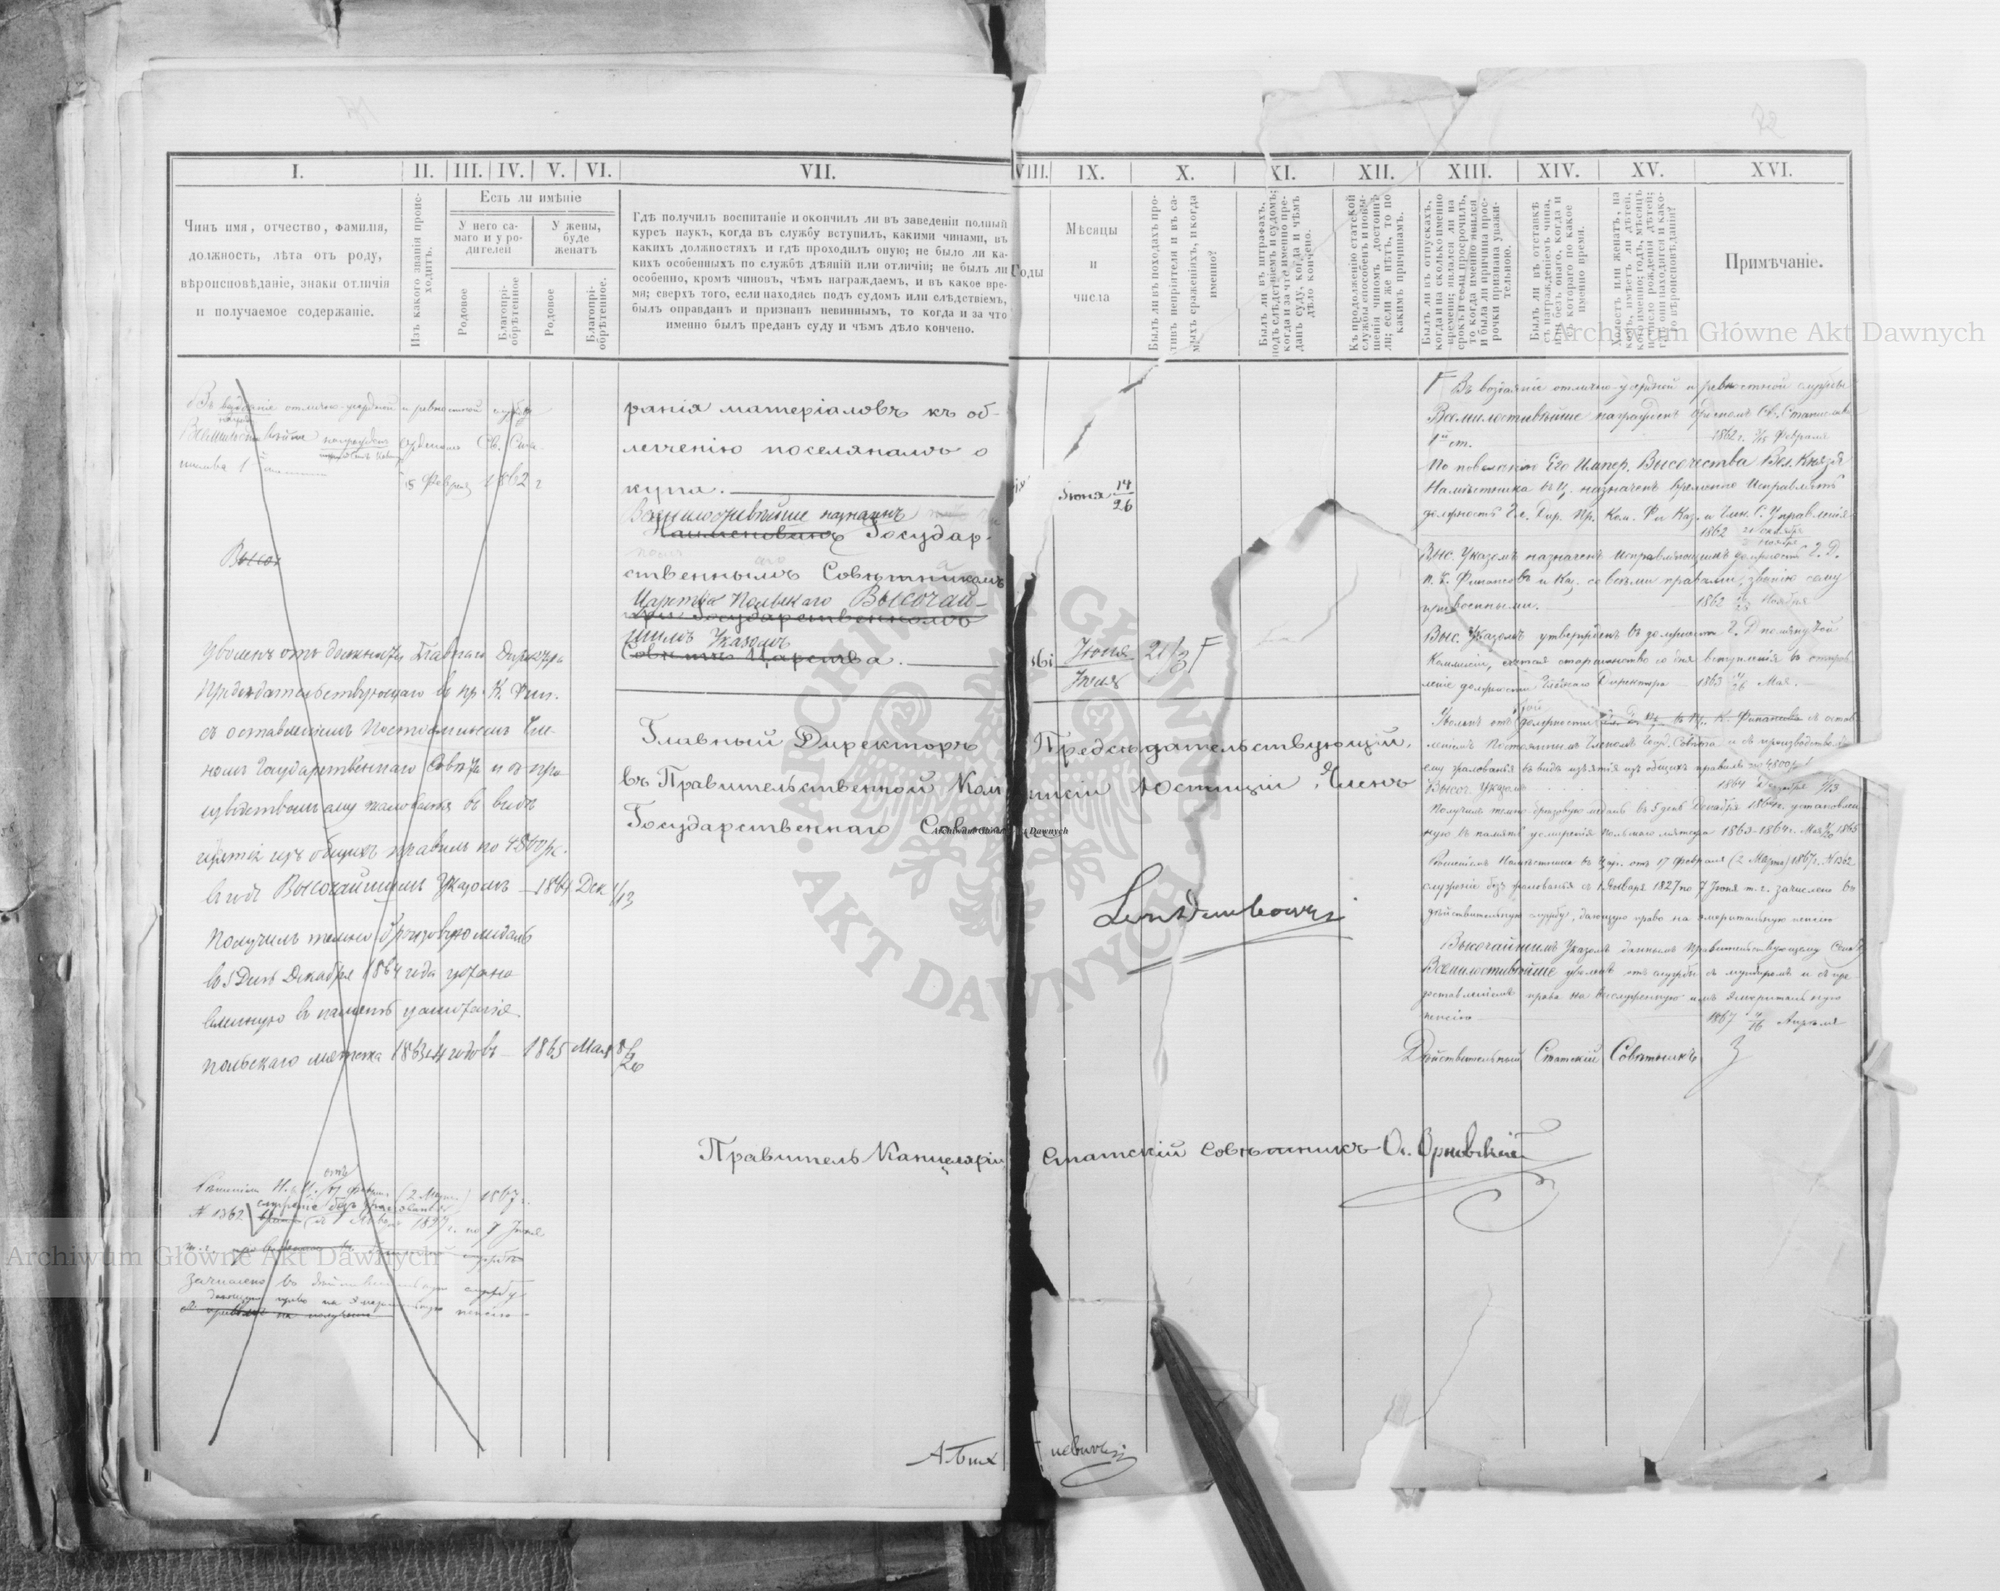 I. II. III. IV. V. VI. VII. VIII. IX. X. XI. XII. XIII. XIV. XV. XVI.
Чинъ имя, отчество, фамилія,
должность, лѣта отъ роду,
вѣроисповѣданіе, знаки отличія
и получаемое содержаніе.
Изъ какого званія проис-
ходитъ.
Есть ли имѣніе
У него са-
маго и у ро-
дителей
У жены,
буде
женатъ
Родовое
Благопрі-
обрѣтенное
Родовое
Благопрі-
обрѣтенное.
Гдѣ получилъ воспитаніе и окончилъ ли въ заведеніи полный
курсъ наукъ, когда въ службу вступилъ, какими чинами, въ
какихъ должностяхъ и гдѣ проходилъ оную; не было ли ка-
кихъ особенныхъ по службѣ дѣяній или отличій; не былъ ли
особенно, кромѣ чиновъ, чѣмъ награждаемъ, и въ какое вре-
мя; сверхъ того, если находясь подъ судомъ или слѣдствіемъ,
былъ оправданъ и признанъ невиннымъ, то когда и за что
именно былъ преданъ суду и чѣмъ дѣло кончено.
Годы
Мѣсяцы
и
числа
Былъ ли въ походахъ про-
тивъ непріятеля и въ са-
мыхъ сраженіяхъ, и когда
именно?
Былъ ли въ штрафахъ,
подъ слѣдствіемъ и судомъ;
когда и за что именно пре-
данъ суду, когда и чѣмъ
дѣло кончено.
Къ продолженію статской
службы способенъ и повы-
шенія чиномъ достоинъ
ли; если же нѣтъ, то по
какимъ причинамъ.
Былъ ли въ отпускахъ,
когда и на сколько именно
времени; являлся ли на
срокъ и если просрочилъ,
то когда именно явился
и была ли причина прос-
рочки признана уважи-
тельною.
Былъ ли въ отставкѣ
съ награжденіемъ чина,
или безъ онаго, когда и
съ котораго по какое
именно время.
Холостъ или женатъ, на
комъ, имѣетъ ли дѣтей,
кого именно; годъ, мѣсяцъ
и число рожденія дѣтей;
гдѣ они находятся и како-
го вѣроисповѣданія?
Примѣчаніе.
Въ воздаяніе отлично-усердной и ревностной службы
Всемилостивѣйше награжденъ орденомъ Св. Стани-
слава 1й степени
Февраля 1862 г
Высоч
Уволенъ отъ должности Главнаго Директора
Предсѣдательствующаго въ Пр. К. Фин.
съ оставленіемъ Постояннымъ Чле-
номъ Государственнаго Совѣта и съ про-
изводствомъ ему жалованья въ видѣ
изъятія изъ общихъ правилъ по 4500 р.
въ годъ Высочайшимъ Указомъ — 1864 Дек 1/13
Получилъ темно бронзовую медаль
въ 5 день Декабря 1864 года установ-
ленную въ память усмиренія
польскаго мятежа 1863-4 годовъ — 1865 Мая 8/20
(2 Марта) 1867 г.
№ 1362 службы безъ жалованья
1827 г. по 7 Іюня
т. г.
зачислено въ дѣйствительную службу
дающую право на эмеритальную пенсію
ранія матеріаловъ къ об-
легченію поселянамъ о
купа. Іюня 14/26
Всемилостивѣйше назначенъ
Наименованъ Государ-
ственнымъ Совѣтникомъ
Царства Польскаго Высочай-
при Государственномъ
шимъ Указомъ
Совѣтѣ Царства. Іюня 21/3
Іюля
Главный Директоръ Предсѣдательствующій
въ Правительственной Коммисіи Юстиціи, Членъ
Государственнаго Совѣта
Правитель Канцеляріи Статскій Совѣтникъ
Въ воздаяніе отлично-усердной и ревностной службы
Всемилостивѣйше награжденъ орденомъ Св. Станислава
1й ст. 1862 г. Февраля
По повелѣнію Его Импер. Высочества Вел. Князя
Намѣстника въ Ц. назначенъ временно Исправлять
должность Гл. Дир. Пр. Ком. Ф. и Каз. и Член. С. Управленія
1862
Выс. Указомъ назначенъ Исправляющимъ должность Г. Д.
П. К. Финансовъ и Каз. со всѣми правами, званію сему
присвоенными. 1862 Ноября
Выс. Указомъ утвержденъ въ должности Г. Д. помянутой
Коммисіи, считая старшинство со дня вступленія въ отправ-
леніе должности Главнаго Директора — 1863 Мая.
Уволенъ отъ должности К. Финансовъ съ остав-
леніемъ Постояннымъ Членомъ Госуд. Совѣта и съ производствомъ
ему жалованья въ видѣ изъятія изъ общихъ правилъ по 4500 р.
Высоч. Указомъ 1864 Декабря 1/13
Получилъ темно-бронзовую медаль въ 5 день Декабря 1864 г. установлен-
ную въ память усмиренія Польскаго мятежа 1863-1864 г. Мая 8/20 1865
Рѣшеніемъ Намѣстника въ Цар. отъ 17 Февраля (2 Марта) 1867 г. № 1362
служеніе безъ жалованья съ 1 Января 1827 по 7 Іюня т. г. зачислено въ
дѣйствительную службу, дающую право на эмеритальную пенсію
Высочайшимъ Указомъ даннымъ Правительствующему Сенату
Всемилостивѣйше уволенъ отъ службы съ мундиромъ и съ пре-
доставленіемъ права на выслуженную имъ эмеритальную
пенсію 1867 4/16 Апрѣля
Дѣйствительный Статскій Совѣтникъ
Archiwum Główne Akt Dawnych
Archiwum Główne Akt Dawnych
Archiwum Główne Akt Dawnych
ARCHIWUM GŁÓWNE AKT DAWNYCH